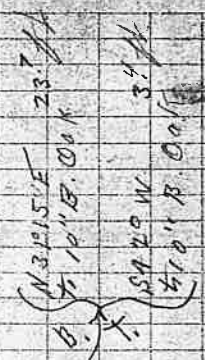 B. T.
N 31°15' E 23.7 ft
10" B. Oak
S 42° W 3.4 ft
10" B. Oak